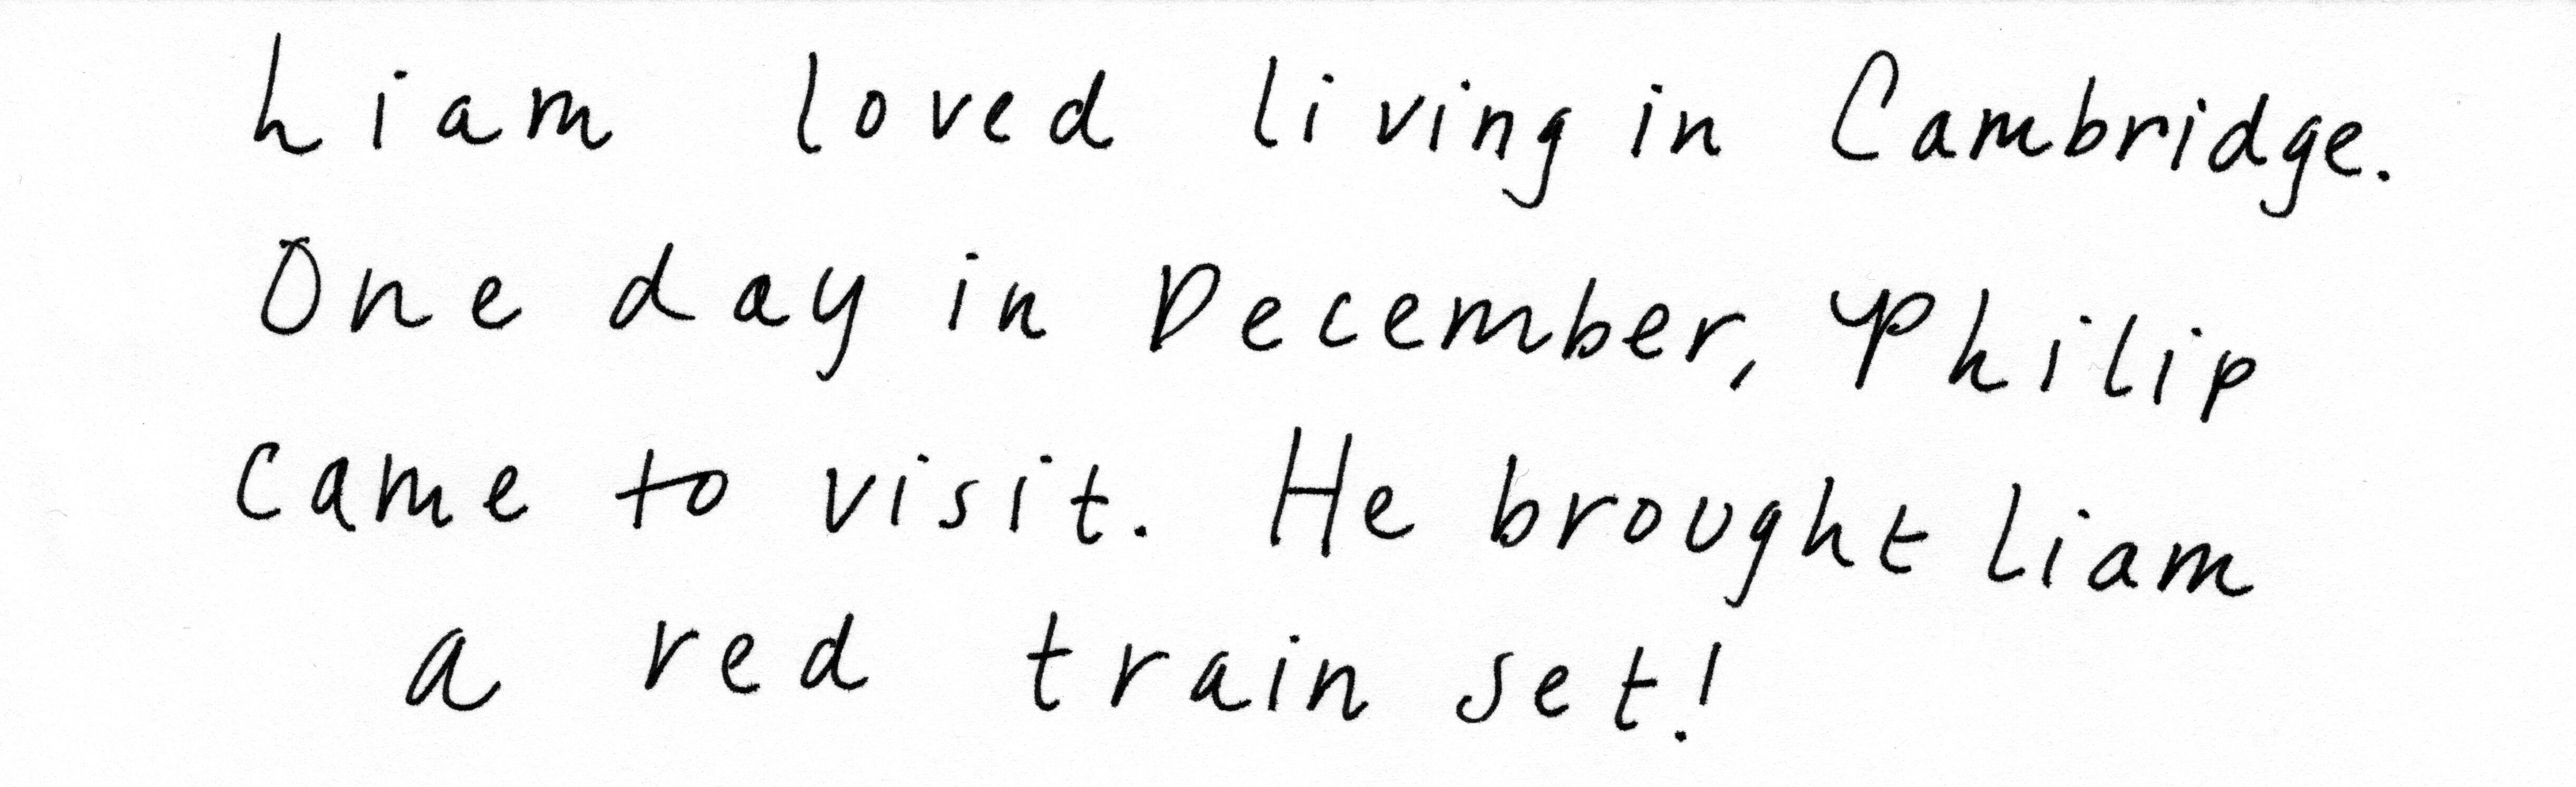 Liam loved living in Cambridge.
One day in December, Philip
came to visit. He brought Liam
a red train set!